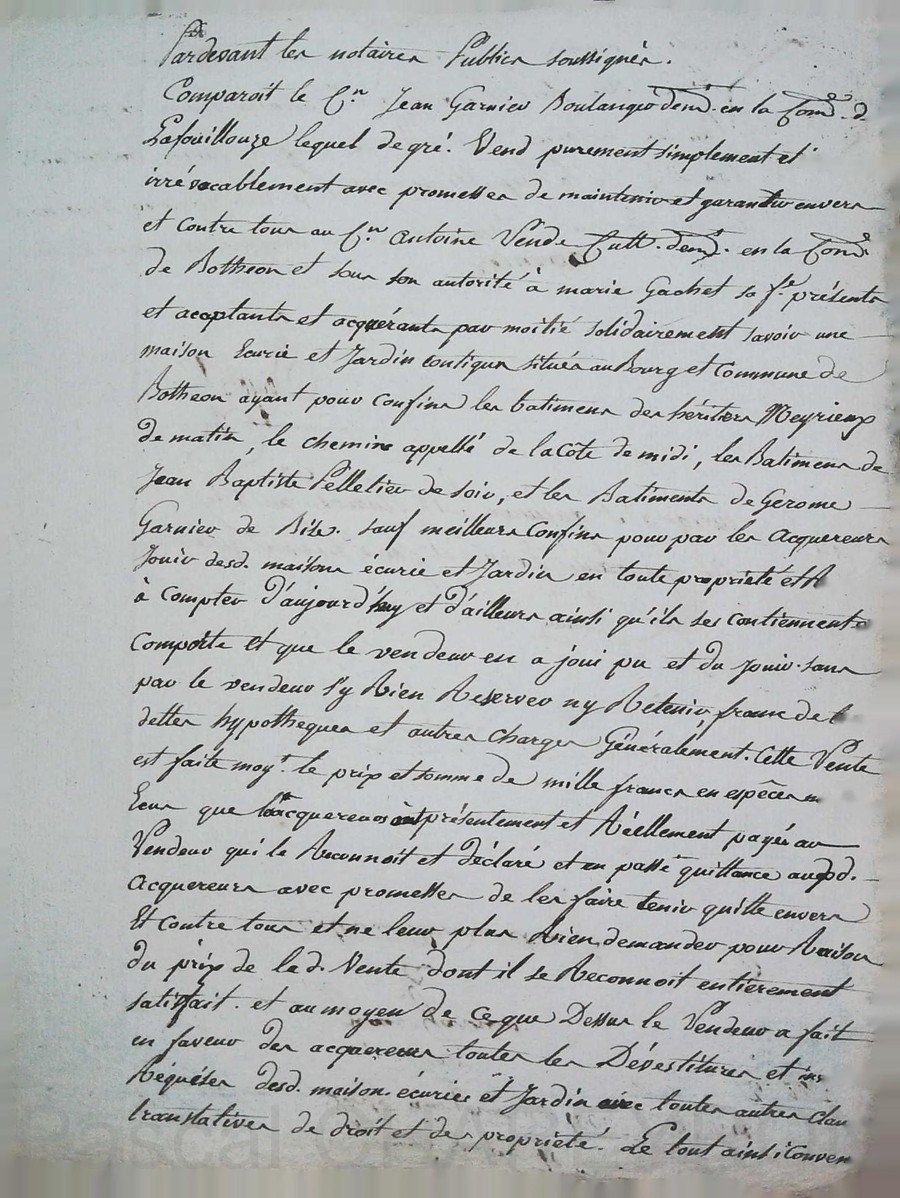 Pardevant les notaires Publics soussignés.
Comparoit le C.en Jean Garnier Boulanger dem.t en la Com.e de
Lafouillouze lequel de gré. Vend purement simplement et
irrévocablement avec promesses de maintenir et garantir envers
et contre tous au C.en antoine Vende Cult. dem.t en la Com.e
de Botheon et sous son autorité à marie Gachet sa f.e présents
et acceptants et acquérants par moitié solidairement savoir une
maison Ecurie et Jardin contigus situés au Bourg et Commune de
Botheon ayant pour Confins les batimens des héritiers Meyrieux
de matin, le chemin appellé de la Côte de midi, les Batimens de
Jean Baptiste Pelletier de soir, et les Batiments de Gerome
Garnier de Bize. sauf meilleurs Confins pour par les Acquereurs
Jouir desd. maisons écurie et Jardin en toute propriété et
à Compter d'aujourd'huy et d'ailleurs ainsi qu'ils se contiennent
Comporte et que le vendeur en a joui pu et du jouir. sans
par le vendeur s'y Rien Reserver ny Retenir, franc de
dettes hypotheques et autres Charges Généralement. Cette Vente
est faite moy.t le prix et somme de mille francs en espèces
Ecus que les acquereurs ont présentement et Réellement payés au
Vendeur qui le Reconnoit et déclaré et en passe quittance auxd.
Acquereurs avec promesses de les faire tenir quitte envers
Et Contre tous et ne leur plus Rien demander pour Raison
du prix de lad. Vente dont il se Reconnoit entierement
satisfait. et au moyen de Ceque Dessus le Vendeur a fait
en faveur des acquereurs toutes les Dévestitures et
Réquises desd. maison. écurie et Jardin avec toutes autres clau
translatives de droit et de propriété. Le tout ainsi Conven